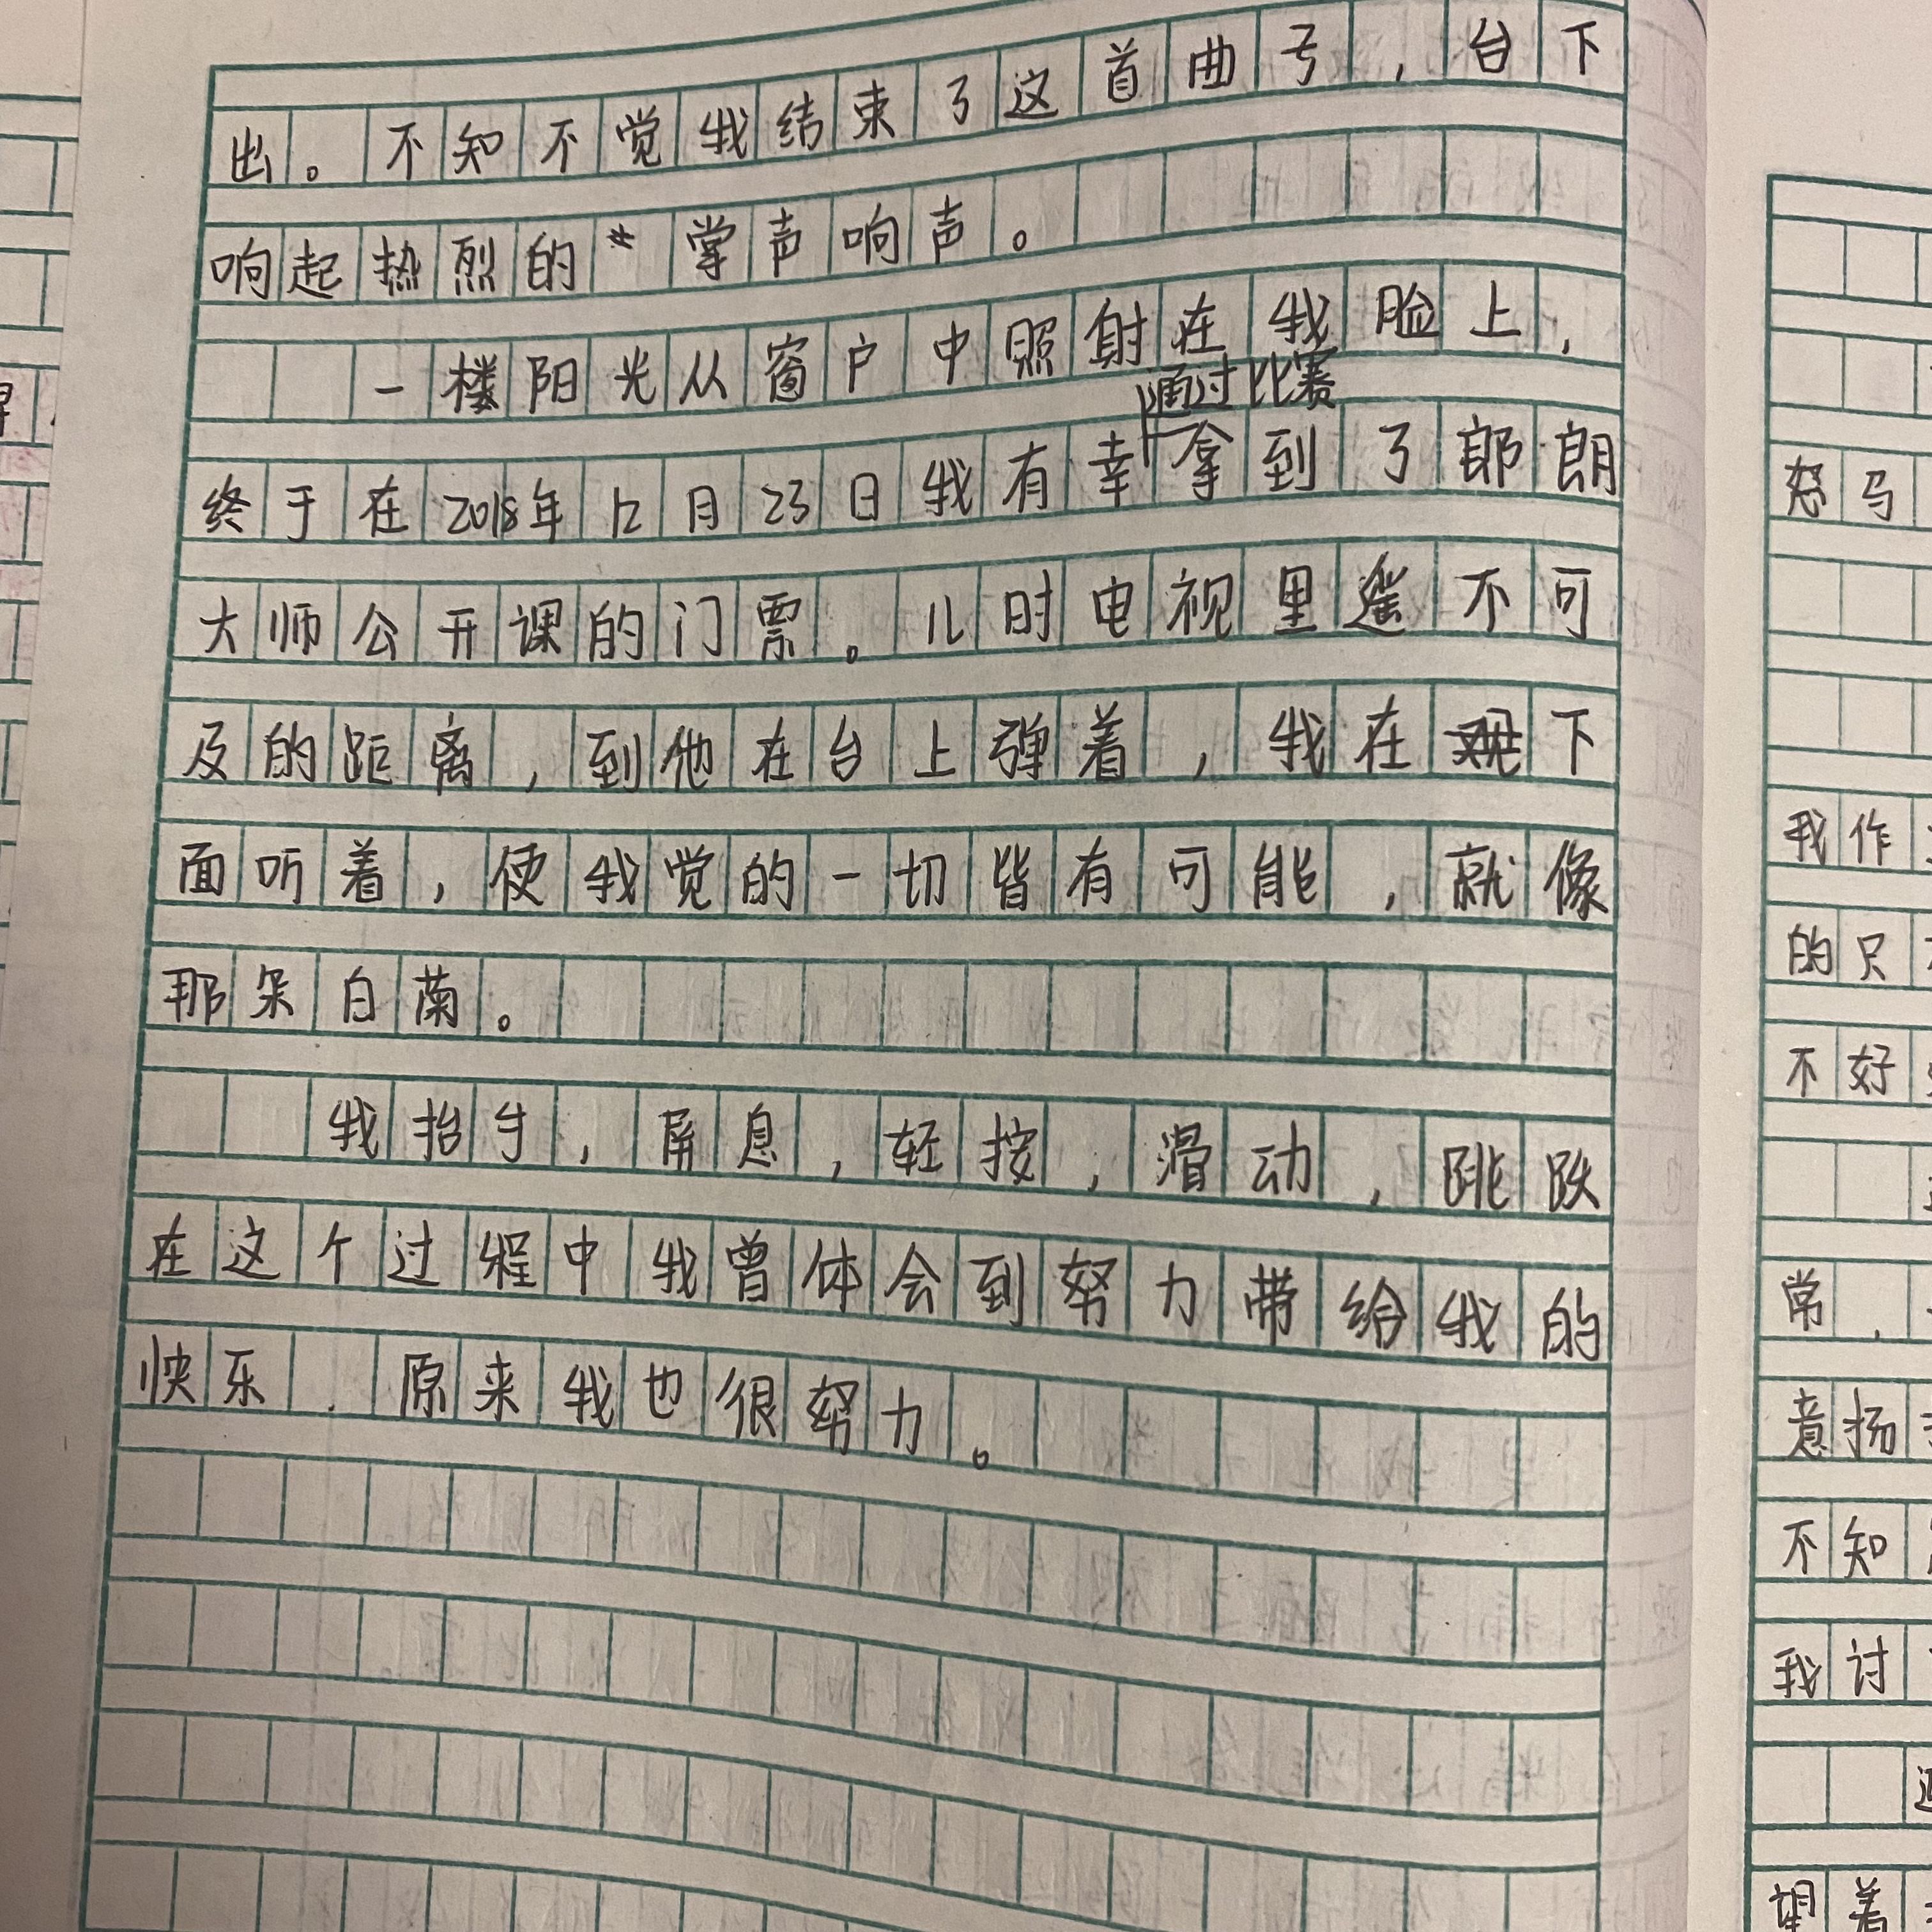 出。不知不觉我结束了这首曲子,台下
响起热烈的掌声响声。
一楼阳光从窗户中照射在我脸上,
通过比赛
终于在2018年12月23日我有幸拿到了郎朗
大师公开课的门票。儿时电视里遥不可
及的距离,到他在台上弹着,我在下
面听着,使我觉的一切皆有可能,就像
那朵白菊。
我抬手,屏息,轻按,滑动,跳跃
在这个过程中我曾体会到努力带给我的
快乐,原来我也很努力。
怒马
我作
的只
不好
常,
意扬
不知
我讨
望着